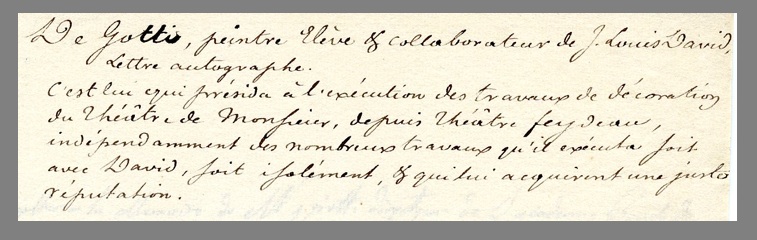 De Gotti, peintre Elève & collaborateur de J. Louis David,
Lettre autographe.
C'est lui qui présida à l'exécution des travaux de décoration
du théâtre de Monsieur, depuis théâtre feydeau,
indépendamment des nombreux travaux qu'il exécuta soit
avec David, soit isolément, & qui lui acquirent une juste
réputation.